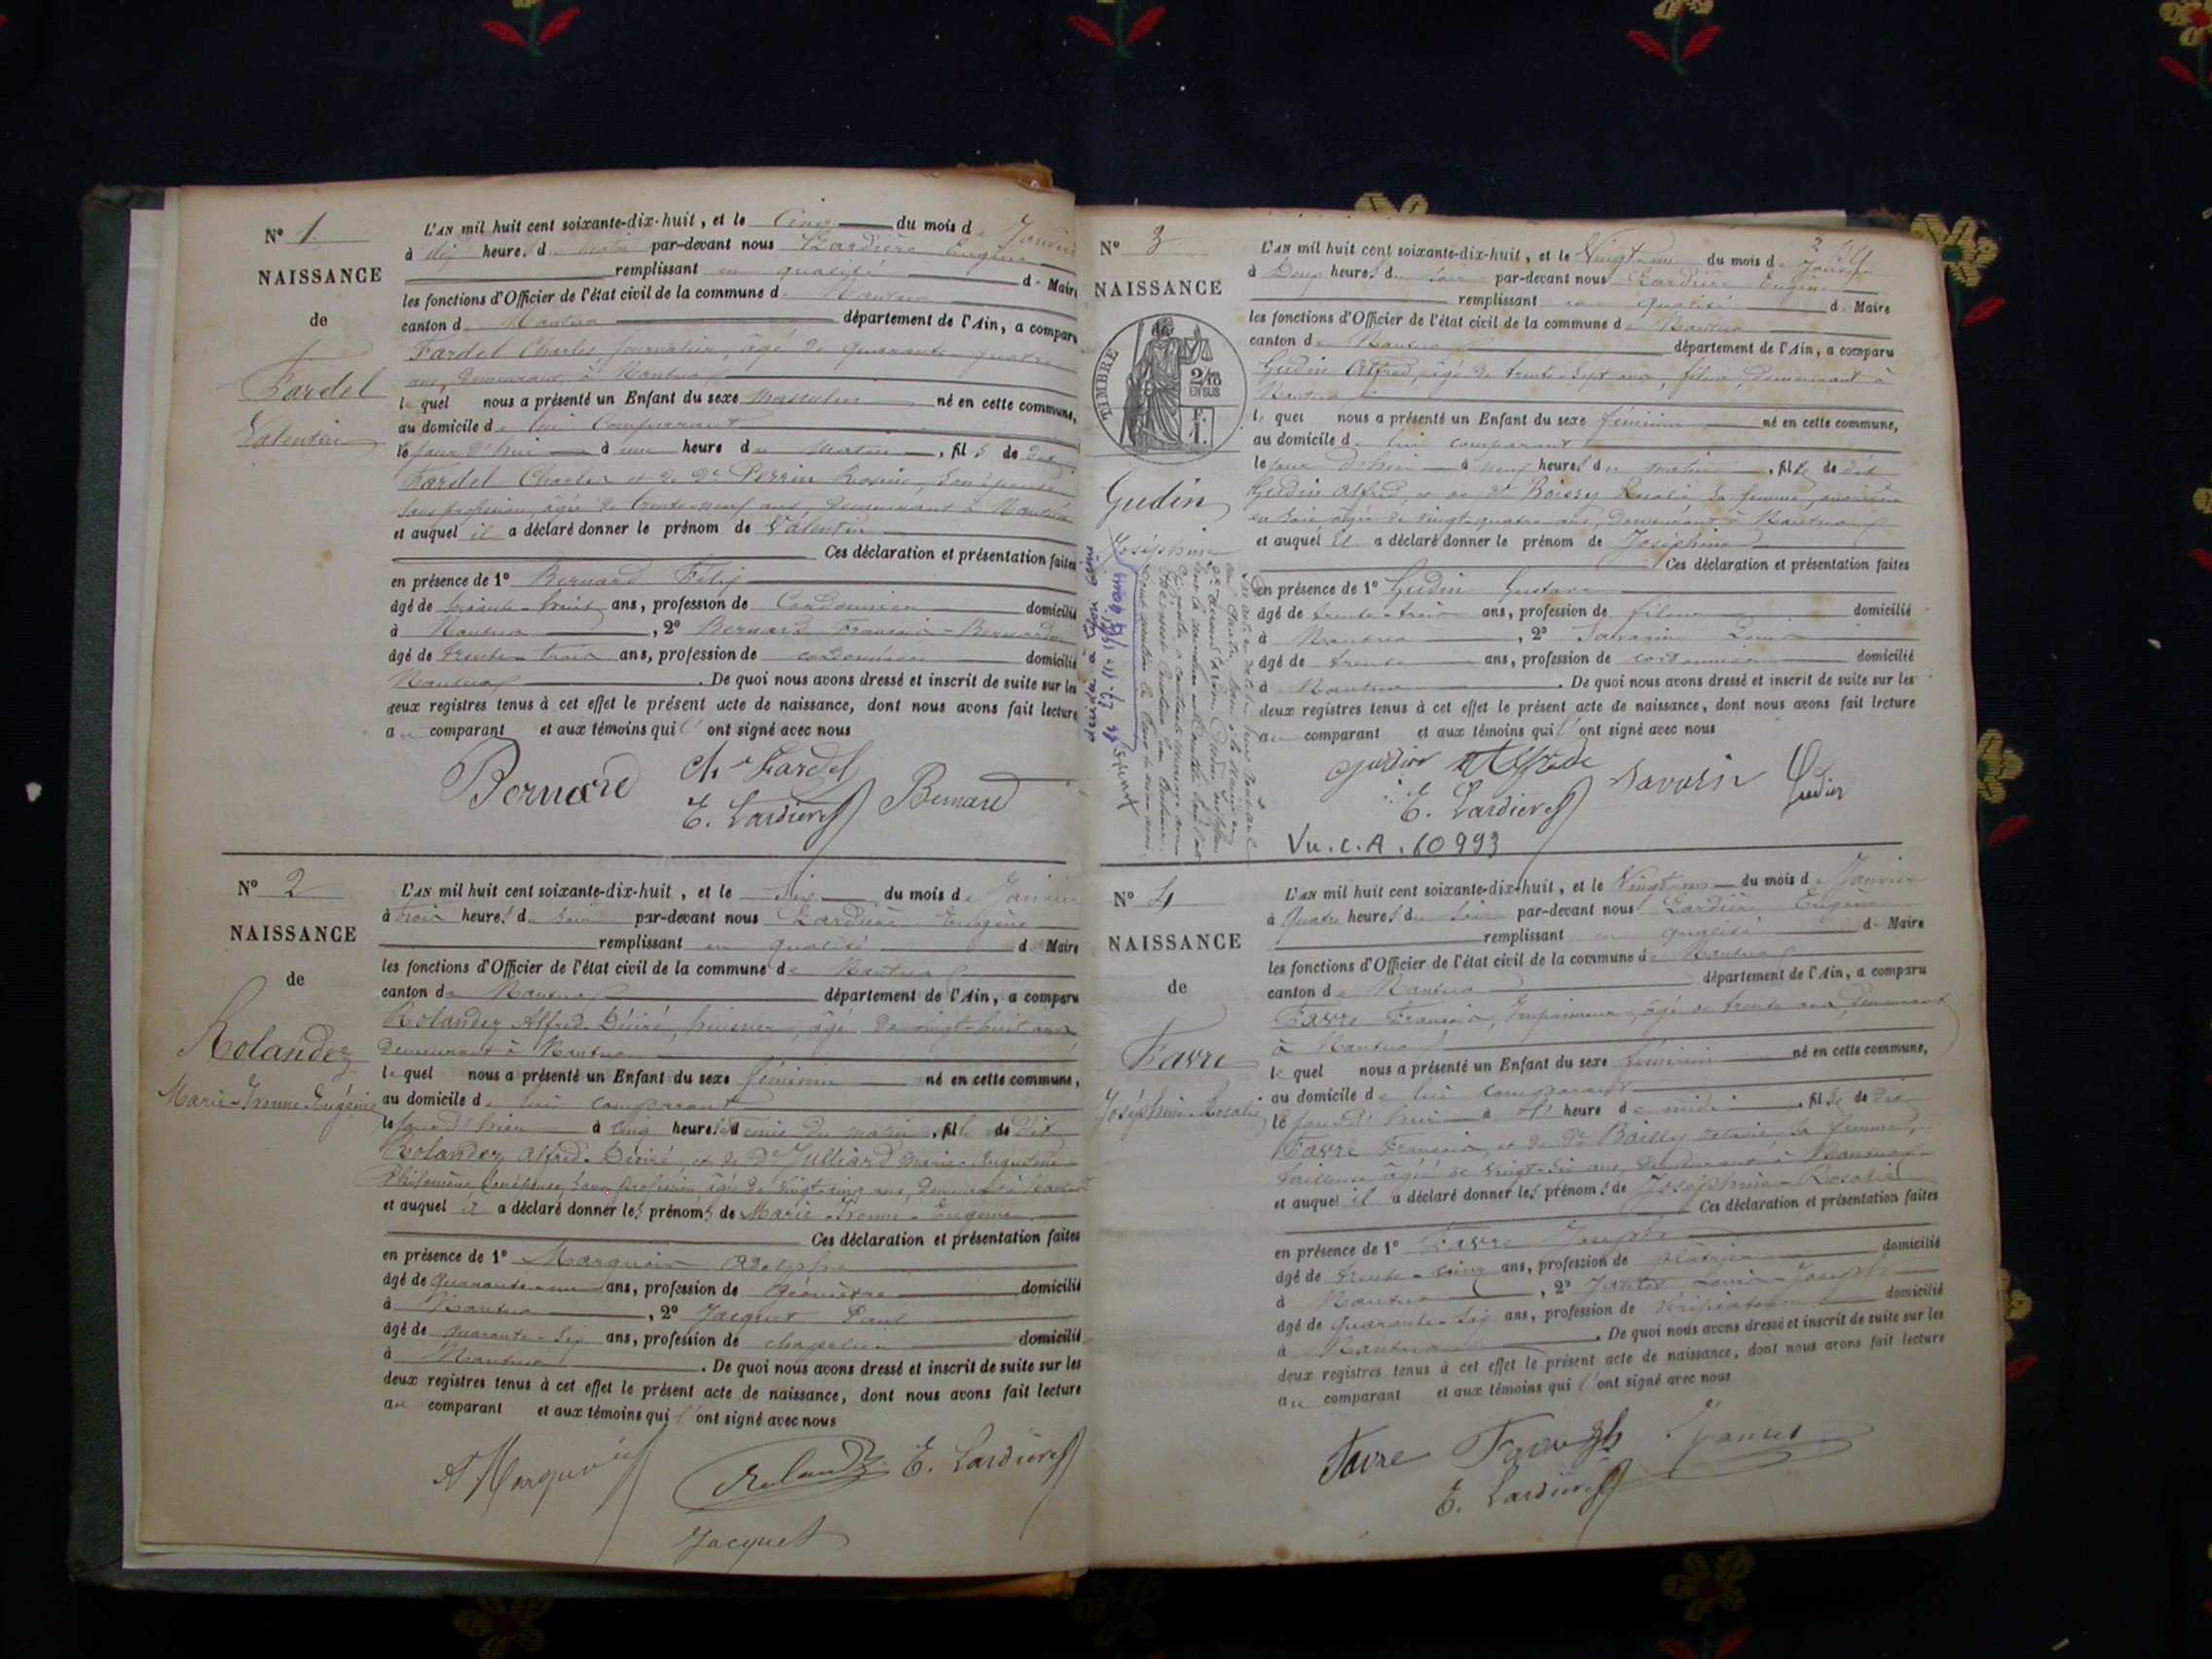 N° 1.
NAISSANCE
de
Fardel
Valentin
L'AN mil huit cent soixante-dix-huit, et le Cinq du mois de Janvier
à dix heures du matin par-devant nous Lardière Eugène
remplissant en qualité de Maire
les fonctions d'Officier de l'état civil de la commune de Nantua
canton de Nantua département de l'Ain, a comparu
Fardel Charles, journalier, âgé de quarante-quatre
ans, demeurant à Nantua
lequel nous a présenté un Enfant du sexe masculin né en cette commune,
au domicile de lui comparant
le jour d'hui à une heure du matin, fils de dit
Fardel Charles et de De Perrin Rosine, son épouse
sans profession, âgée de trente-neuf ans, demeurant à Nantua
et auquel il a déclaré donner le prénom de Valentin
Ces déclaration et présentation faites
en présence de 1° Bernard Félix
âgé de soixante-huit ans, profession de Cordonnier domicilié
à Nantua, 2° Bernard François-Bernardin
âgé de trente-trois ans, profession de cordonnier domicilié
Nantua. De quoi nous avons dressé et inscrit de suite sur les
deux registres tenus à cet effet le présent acte de naissance, dont nous avons fait lecture
au comparant et aux témoins qui l'ont signé avec nous
Bernard Ch. Fardel
E. Lardière Bernard
N° 2
NAISSANCE
de
Rolandez
Marie-Irenne-Eugénie
L'AN mil huit cent soixante-dix-huit, et le six du mois de Janvier
à trois heures du soir par-devant nous Lardière Eugène
remplissant en qualité de Maire
les fonctions d'Officier de l'état civil de la commune de Nantua
canton de Nantua département de l'Ain, a comparu
Rolandez Alfred-Désiré, huissier, âgé de vingt-huit ans,
demeurant à Nantua
lequel nous a présenté un Enfant du sexe féminin né en cette commune,
au domicile de lui comparant
le jour d'hier à cinq heures et demie du matin, fille de Dit
Rolandez Alfred-Désiré, et de De Julliard Marie-Augustine
Philomène sans profession, âgée de vingt-cinq ans, demeurant à Nantua
et auquel il a déclaré donner les prénoms de Marie-Irenne-Eugénie
Ces déclaration et présentation faites
en présence de 1° Marquois Adolphe
âgé de quarante-un ans, profession de géomètre domicilié
à Nantua, 2° Jacquet Paul
âgé de quarante-six ans, profession de chapelier domicilié
à Nantua. De quoi nous avons dressé et inscrit de suite sur les
deux registres tenus à cet effet le présent acte de naissance, dont nous avons fait lecture
au comparant et aux témoins qui l'ont signé avec nous
A Marquois Rolandez E. Lardière
Jacquet
N° 3
NAISSANCE
TIMBRE
2/10
EN SUS
F.
1.
Gudin
Joséphine
L'AN mil huit cent soixante-dix-huit, et le Vingt-un du mois de Janvier
à Deux heures du soir par-devant nous Lardière Eugène
remplissant en qualité de Maire
les fonctions d'Officier de l'état civil de la commune de Nantua
canton de Nantua département de l'Ain, a comparu
Gudin Alfred, âgé de trente-sept ans, fileur, demeurant à
Nantua
lequel nous a présenté un Enfant du sexe féminin né en cette commune,
au domicile de lui comparant
le jour d'hui à neuf heures du matin, fille de dit
Gudin Alfred, et de De Boissy Rosalie sa femme, ouvrière
en soie âgée de vingt-quatre ans, demeurant à Nantua
et auquel il a déclaré donner le prénom de Joséphine
Ces déclaration et présentation faites
en présence de 1° Gudin Gustave
âgé de trente-trois ans, profession de fileur domicilié
à Nantua, 2° Savarin Louis
âgé de trente ans, profession de cordonnier domicilié
à Nantua. De quoi nous avons dressé et inscrit de suite sur les
deux registres tenus à cet effet le présent acte de naissance, dont nous avons fait lecture
au comparant et aux témoins qui l'ont signé avec nous
gudin Alfrede Savarin
E. Lardière Gudin
Vu. C. A. 10993
N° 4
NAISSANCE
de
Favre
Joséphine-Rosalie
L'AN mil huit cent soixante-dix-huit, et le Vingt-un du mois de Janvier
à Quatre heures du soir par-devant nous Lardière Eugène
remplissant en qualité de Maire
les fonctions d'Officier de l'état civil de la commune de Nantua
canton de Nantua département de l'Ain, a comparu
Favre François, Imprimeur, âgé de trente ans, demeurant
à Nantua
lequel nous a présenté un Enfant du sexe féminin né en cette commune,
au domicile de lui comparant
le jour d'hui à heure de midi, fille de Dit
Favre François, et de De Bailly Octavie sa femme,
tailleuse âgée de vingt-six ans, demeurant à Nantua
et auquel il a déclaré donner les prénoms de Joséphine-Rosalie
Ces déclaration et présentation faites
en présence de 1° Favre Joseph
âgé de trente-cinq ans, profession de plâtrier domicilié
à Nantua, 2° Louis-Joseph
âgé de quarante-six ans, profession de vérificateur domicilié
à Nantua. De quoi nous avons dressé et inscrit de suite sur les
deux registres tenus à cet effet le présent acte de naissance, dont nous avons fait lecture
au comparant et aux témoins qui l'ont signé avec nous
Favre
E. Lardière